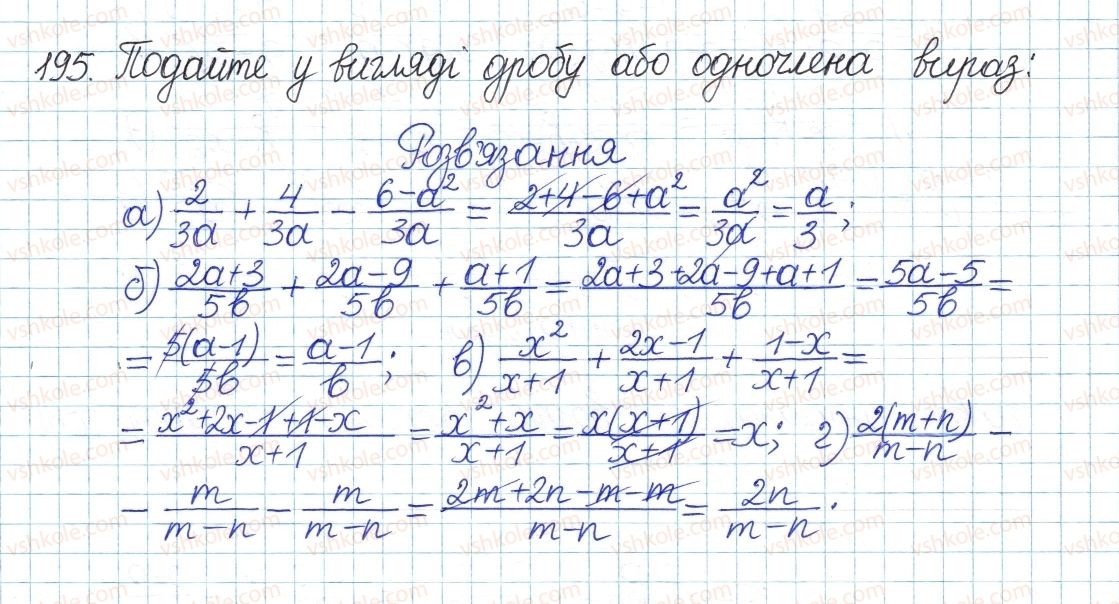 195. Подайте у вигляді дробу або одночлена вираз:
Розв'язання
а) 2/3a + 4/3a - (6-a²)/3a = (2+4-6+a²)/3a = a²/3a = a/3;
б) (2a+3)/5b + (2a-9)/5b + (a+1)/5b = (2a+3+2a-9+a+1)/5b = (5a-5)/5b =
= 5(a-1)/5b = (a-1)/b; в) x²/(x+1) + (2x-1)/(x+1) + (1-x)/(x+1) =
= (x²+2x-1+1-x)/(x+1) = (x²+x)/(x+1) = x(x+1)/(x+1) = x; г) 2(m+n)/(m-n) -
- m/(m-n) - m/(m-n) = (2m+2n-m-m)/(m-n) = 2n/(m-n).